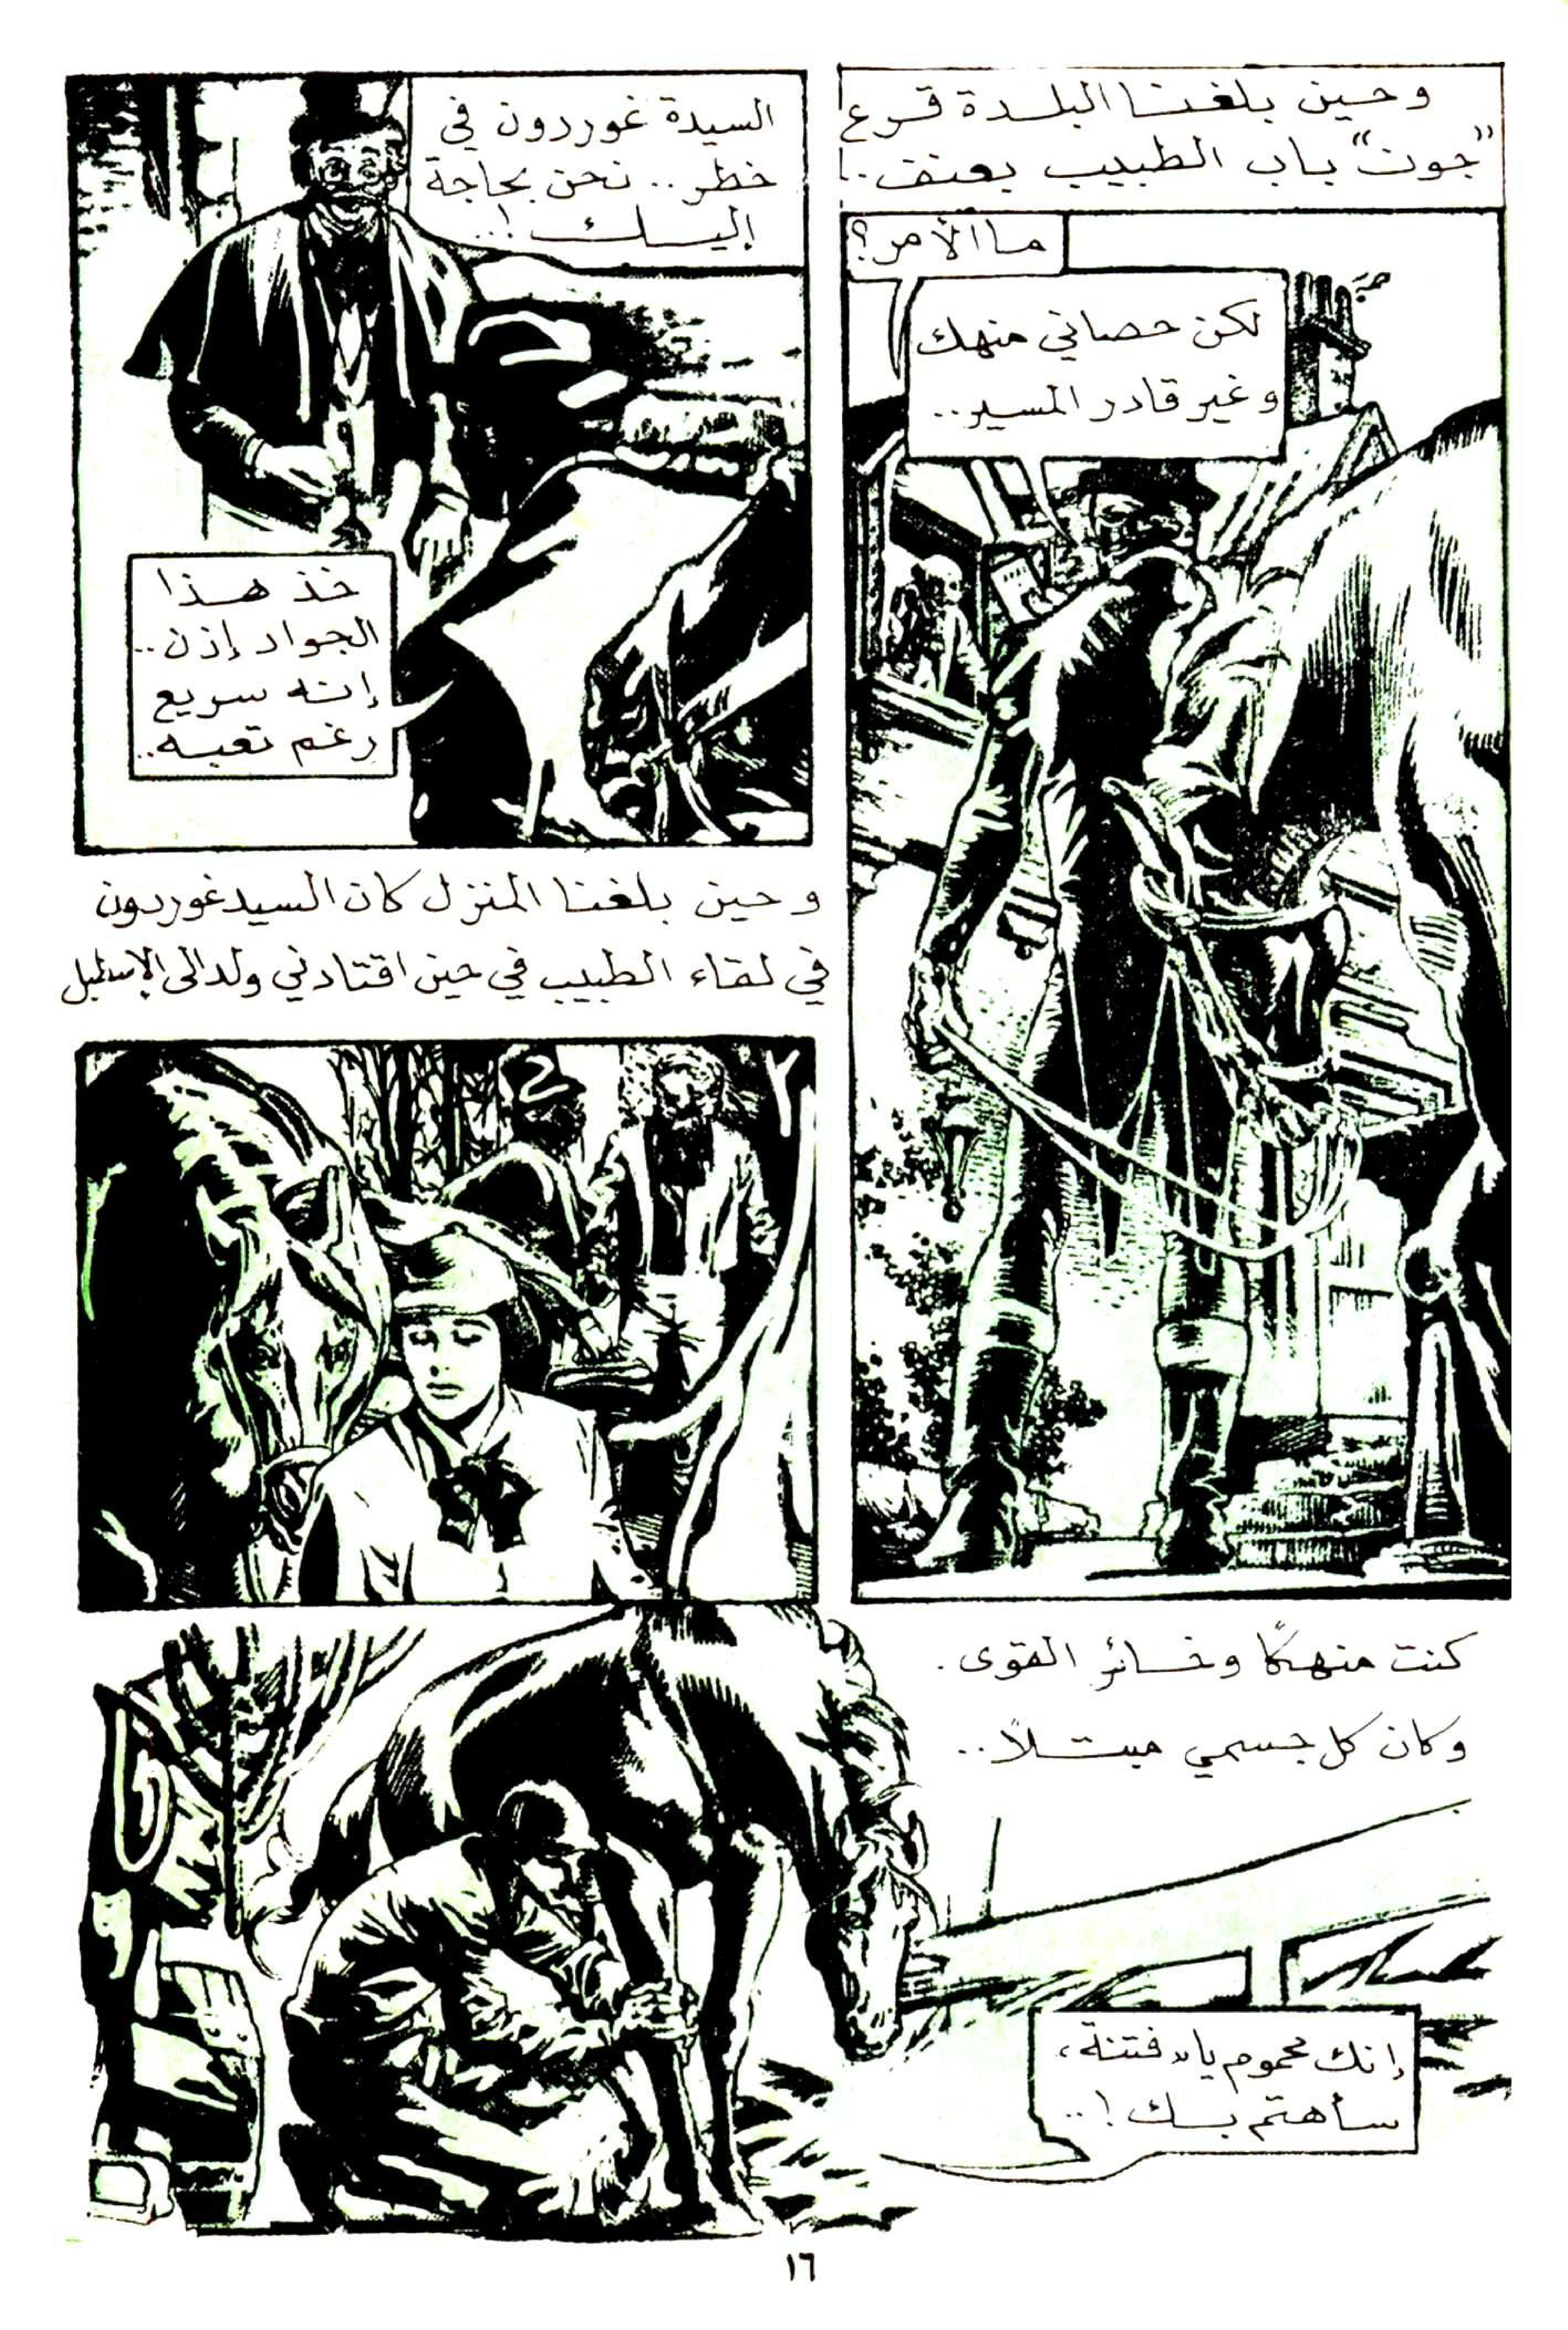 وحين بلغنا البلدة قرع
"جون" باب الطبيب بعنف..
ما الأمر؟
لكن حصاني منهك
وغير قادر المسير..
السيدة غوردون في
خطر.. نحن بحاجة
إليك !..
خذ هذا
الجواد إذن..
إنه سريع
رغم تعبه..
وحين بلغنا المنزل كان السيد غوردون
في لقاء الطبيب في حين اقتادني ولد الى الإسطبل
كنت منهكًا وخائر القوى.
وكان كل جسمي مبتلاً..
إنك محموم يا "فتنة"،
سأهتم بك !..
١٦